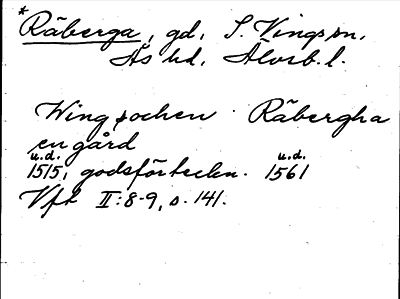 * Räberga, gd, S. Vings sn,
Ås hd, Älvsb. l.
Wing sochen Räbergha
en gård
u.d. u.d.
1515, godsförteckn. 1561
Vft II:8-9, s. 141.